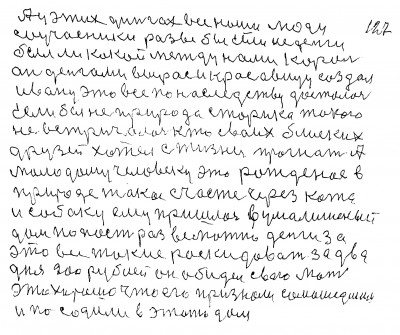 127
А у этих деньгах все наши люди
случасники разве бы сти не деньги
был ли какой между нами
он деньгами вырас и красавицу создал
Ивану это все по наследству досталось
Если бы не природа с такого
не встричался кто своих близких
друзей хотел с жизни прогнат А
молодому человеку это рожденое в
природе такое счасте через кота
и собаку ему пришлос в
дом попаст разве можно денги за
это вы такие раскидоват за два
дня 200 рублей он обидел свою мат
Это хорошо что его признали сомашедшим
и по содили в этот дом